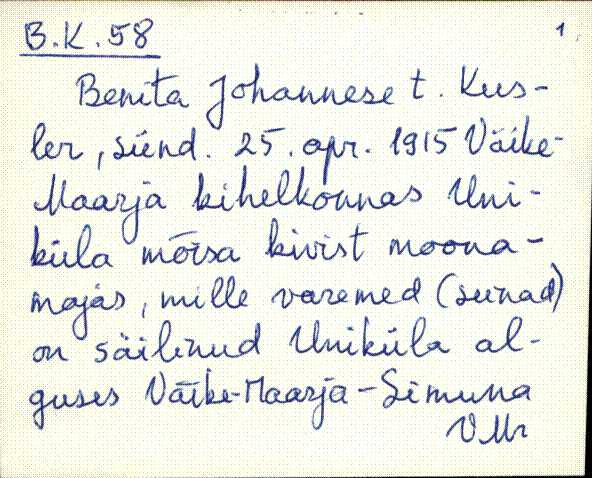 B.K.58
1.
Benita Johannese t. Kus-
ler, sünd. 25. apr. 1915 Väike-
Maarja kihelkonnas Uni-
küla mõisa kivist moona-
majas, mille varemed (seinad)
on säilinud Uniküla al-
guses Väike-Maarja-Simuna
VMr